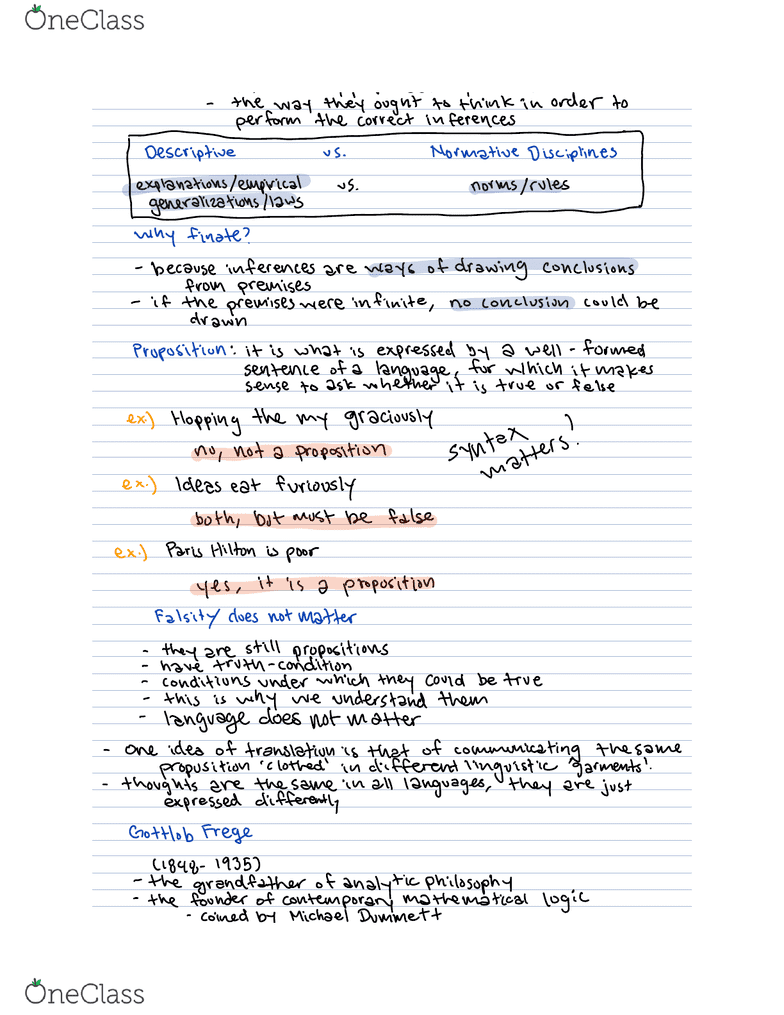 OneClass
- the way they ought to think in order to
perform the correct inferences
Descriptive vs. Normative Disciplines
explanations/empirical vs. norms/rules
generalizations/laws
Why finate?
- because inferences are ways of drawing conclusions
from premises
- if the premises were infinite, no conclusion could be
drawn
Proposition: it is what is expressed by a well-formed
sentence of a language, for which it makes
sense to ask whether it is true or false
ex) Hopping the my graciously
no, not a proposition
syntax
matters!
ex.) Ideas eat furiously
both, but must be false
ex.) Paris Hilton is poor
yes, it is a proposition
Falsity does not matter
- they are still propositions
- have truth-condition
- conditions under which they could be true
- this is why we understand them
- language does not matter
- one idea of translation is that of communicating the same
proposition 'clothed' in different linguistic 'garments'.
- thoughts are the same in all languages, they are just
expressed differently
Gottlob Frege
(1848-1935)
- the grandfather of analytic philosophy
- the founder of contemporary mathematical logic
- coined by Michael Dummett
OneClass